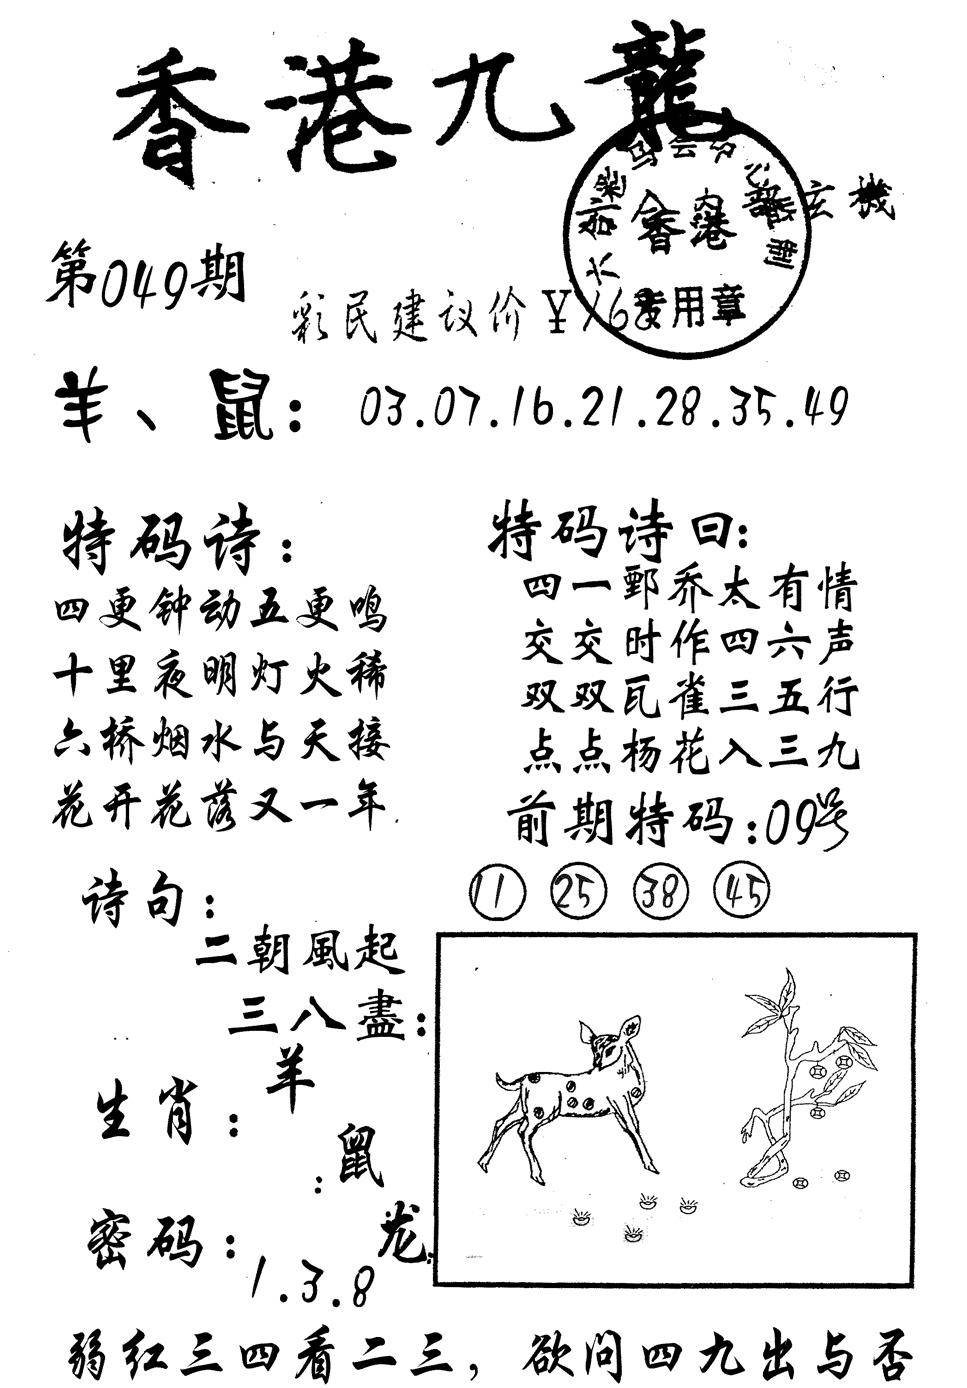 香港九龍
玄機
香港
专用章
第049期
彩民建议价¥168
羊、鼠：03.07.16.21.28.35.49
特码诗：
四更钟动五更鸣
十里夜明灯火稀
六桥烟水与天接
花开花落又一年
特码诗曰：
四一鄄乔太有情
交交时作四六声
双双瓦雀三五行
点点杨花入三九
前期特码：09号
11 25 38 45
诗句：
二朝風起
三八盡：
生肖：羊
鼠
龙
密码：
1.3.8
弱红三四看二三，欲问四九出与否